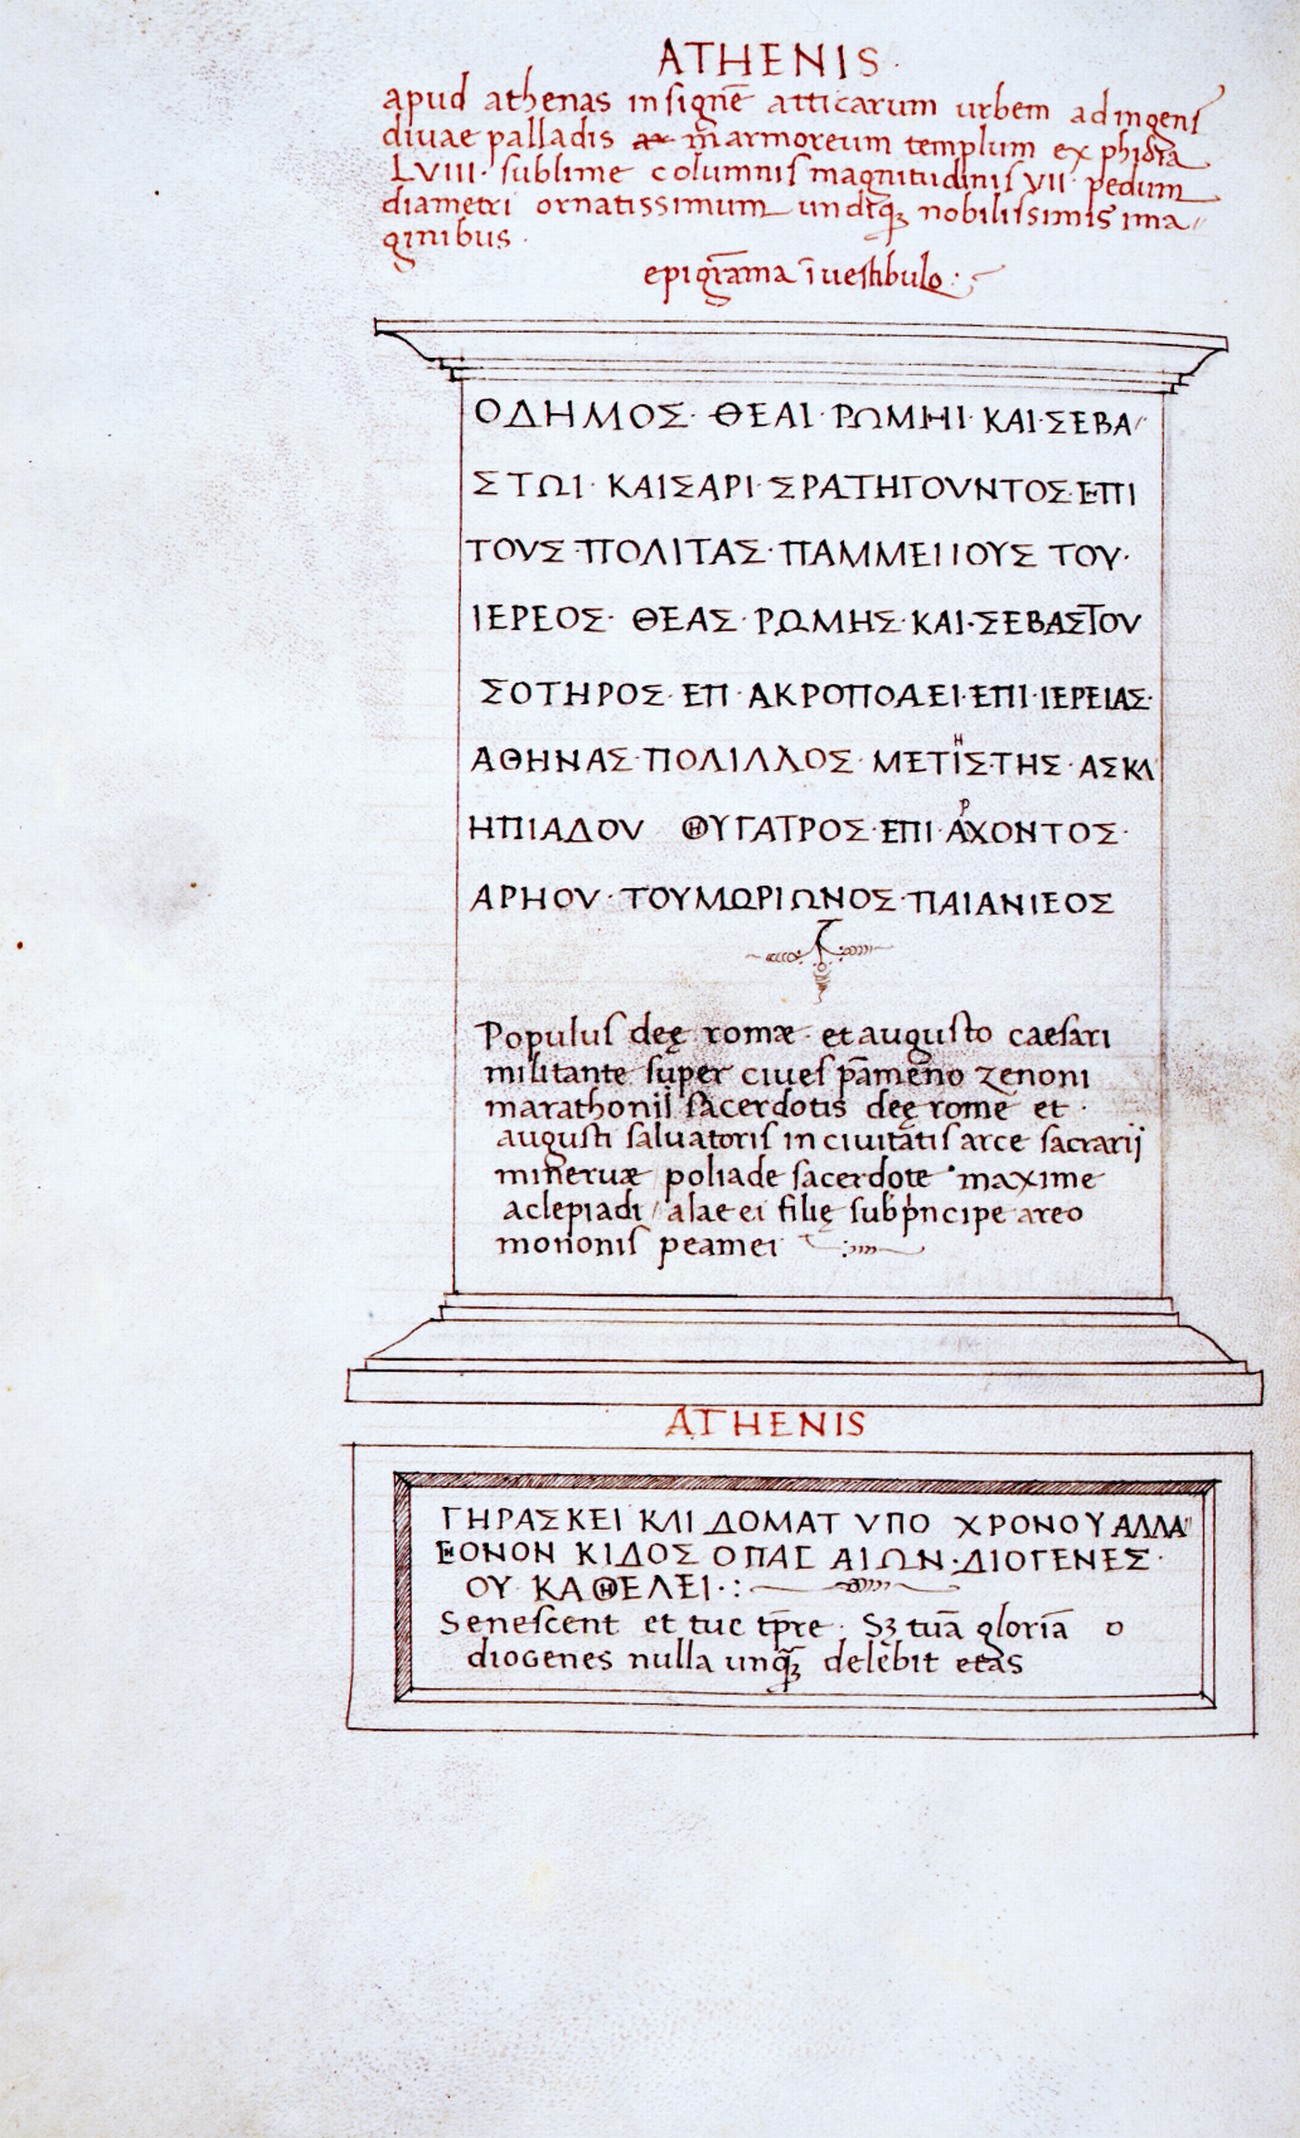 ATHENIS·
apud athenas insignē atticarum urbem ad ingens
divae palladis marmoreum templum ex phidia
LVIII· sublime columnis magnitudinis VII· pedum
diametri ornatissimum undiqꝫ nobilissimis ima〃
ginibus ·
epigrāma ī vestibulo:
ΟΔΗΜΟΣ· ΘΕΑΙ· ΡΩΜΗΙ· ΚΑΙ·ΣΕΒΑ〃
ΣΤΩΙ· ΚΑΙΣΑΡΙ· ΣΡΑΤΗΓΟΥΝΤΟΣ·ΕΠΙ
ΤΟΥΣ·ΠΟΛΙΤΑΣ·ΠΑΜΜΕΙΙΟΥΣ ΤΟΥ·
ΙΕΡΕΟΣ· ΘΕΑΣ· ΡΩΜΗΣ·ΚΑΙ·ΣΕΒΑΣΤΟΥ
ΣΟΤΗΡΟΣ· ΕΠ· ΑΚΡΟΠΟΛΕΙ·ΕΠΙ·ΙΕΡΕΙΑΣ·
ΑΘΗΝΑΣ·ΠΟΛΙΛΛΟΣ· ΜΕΤΙΗΣ·ΤΗΣ· ΑΣΚΛ
ΗΠΙΑΔΟΥ ΘΥΓΑΤΡΟΣ·ΕΠΙ·ΑΡΧΟΝΤΟΣ·
ΑΡΗΟΥ·ΤΟΥΜΩΡΙΩΝΟΣ·ΠΑΙΑΝΙΕΟΣ
Populus deę romæ et augusto caesari
militante super cives pāmeno zenoni
marathonij sacerdotis deę rome et ·
augusti salvatoris in civitatis arce sacrarij
minervæ poliade sacerdote maxime
aclepiadi / alaeei filię sub pͥncipe areo
mononis peamei
ATHENIS
ΓΗΡΑΣΚΕΙ ΚΛΙ ΔΟΜΑΤ ΥΠΟ ΧΡΟΝΟΥ ΑΛΛΑ〃
ΕΟΝΟΝ ΚΙΔΟΣ Ο ΠΑΣ ΑΙΩΝ·ΔΙΟΓΕΝΕΣ·
ΟΥ ΚΑΘΕΛΕΙ·:
Senescent et tuc tp̄re · Sꝫ tuā gloriā o
diogenes nulla unqꝫ̄ delebit etas